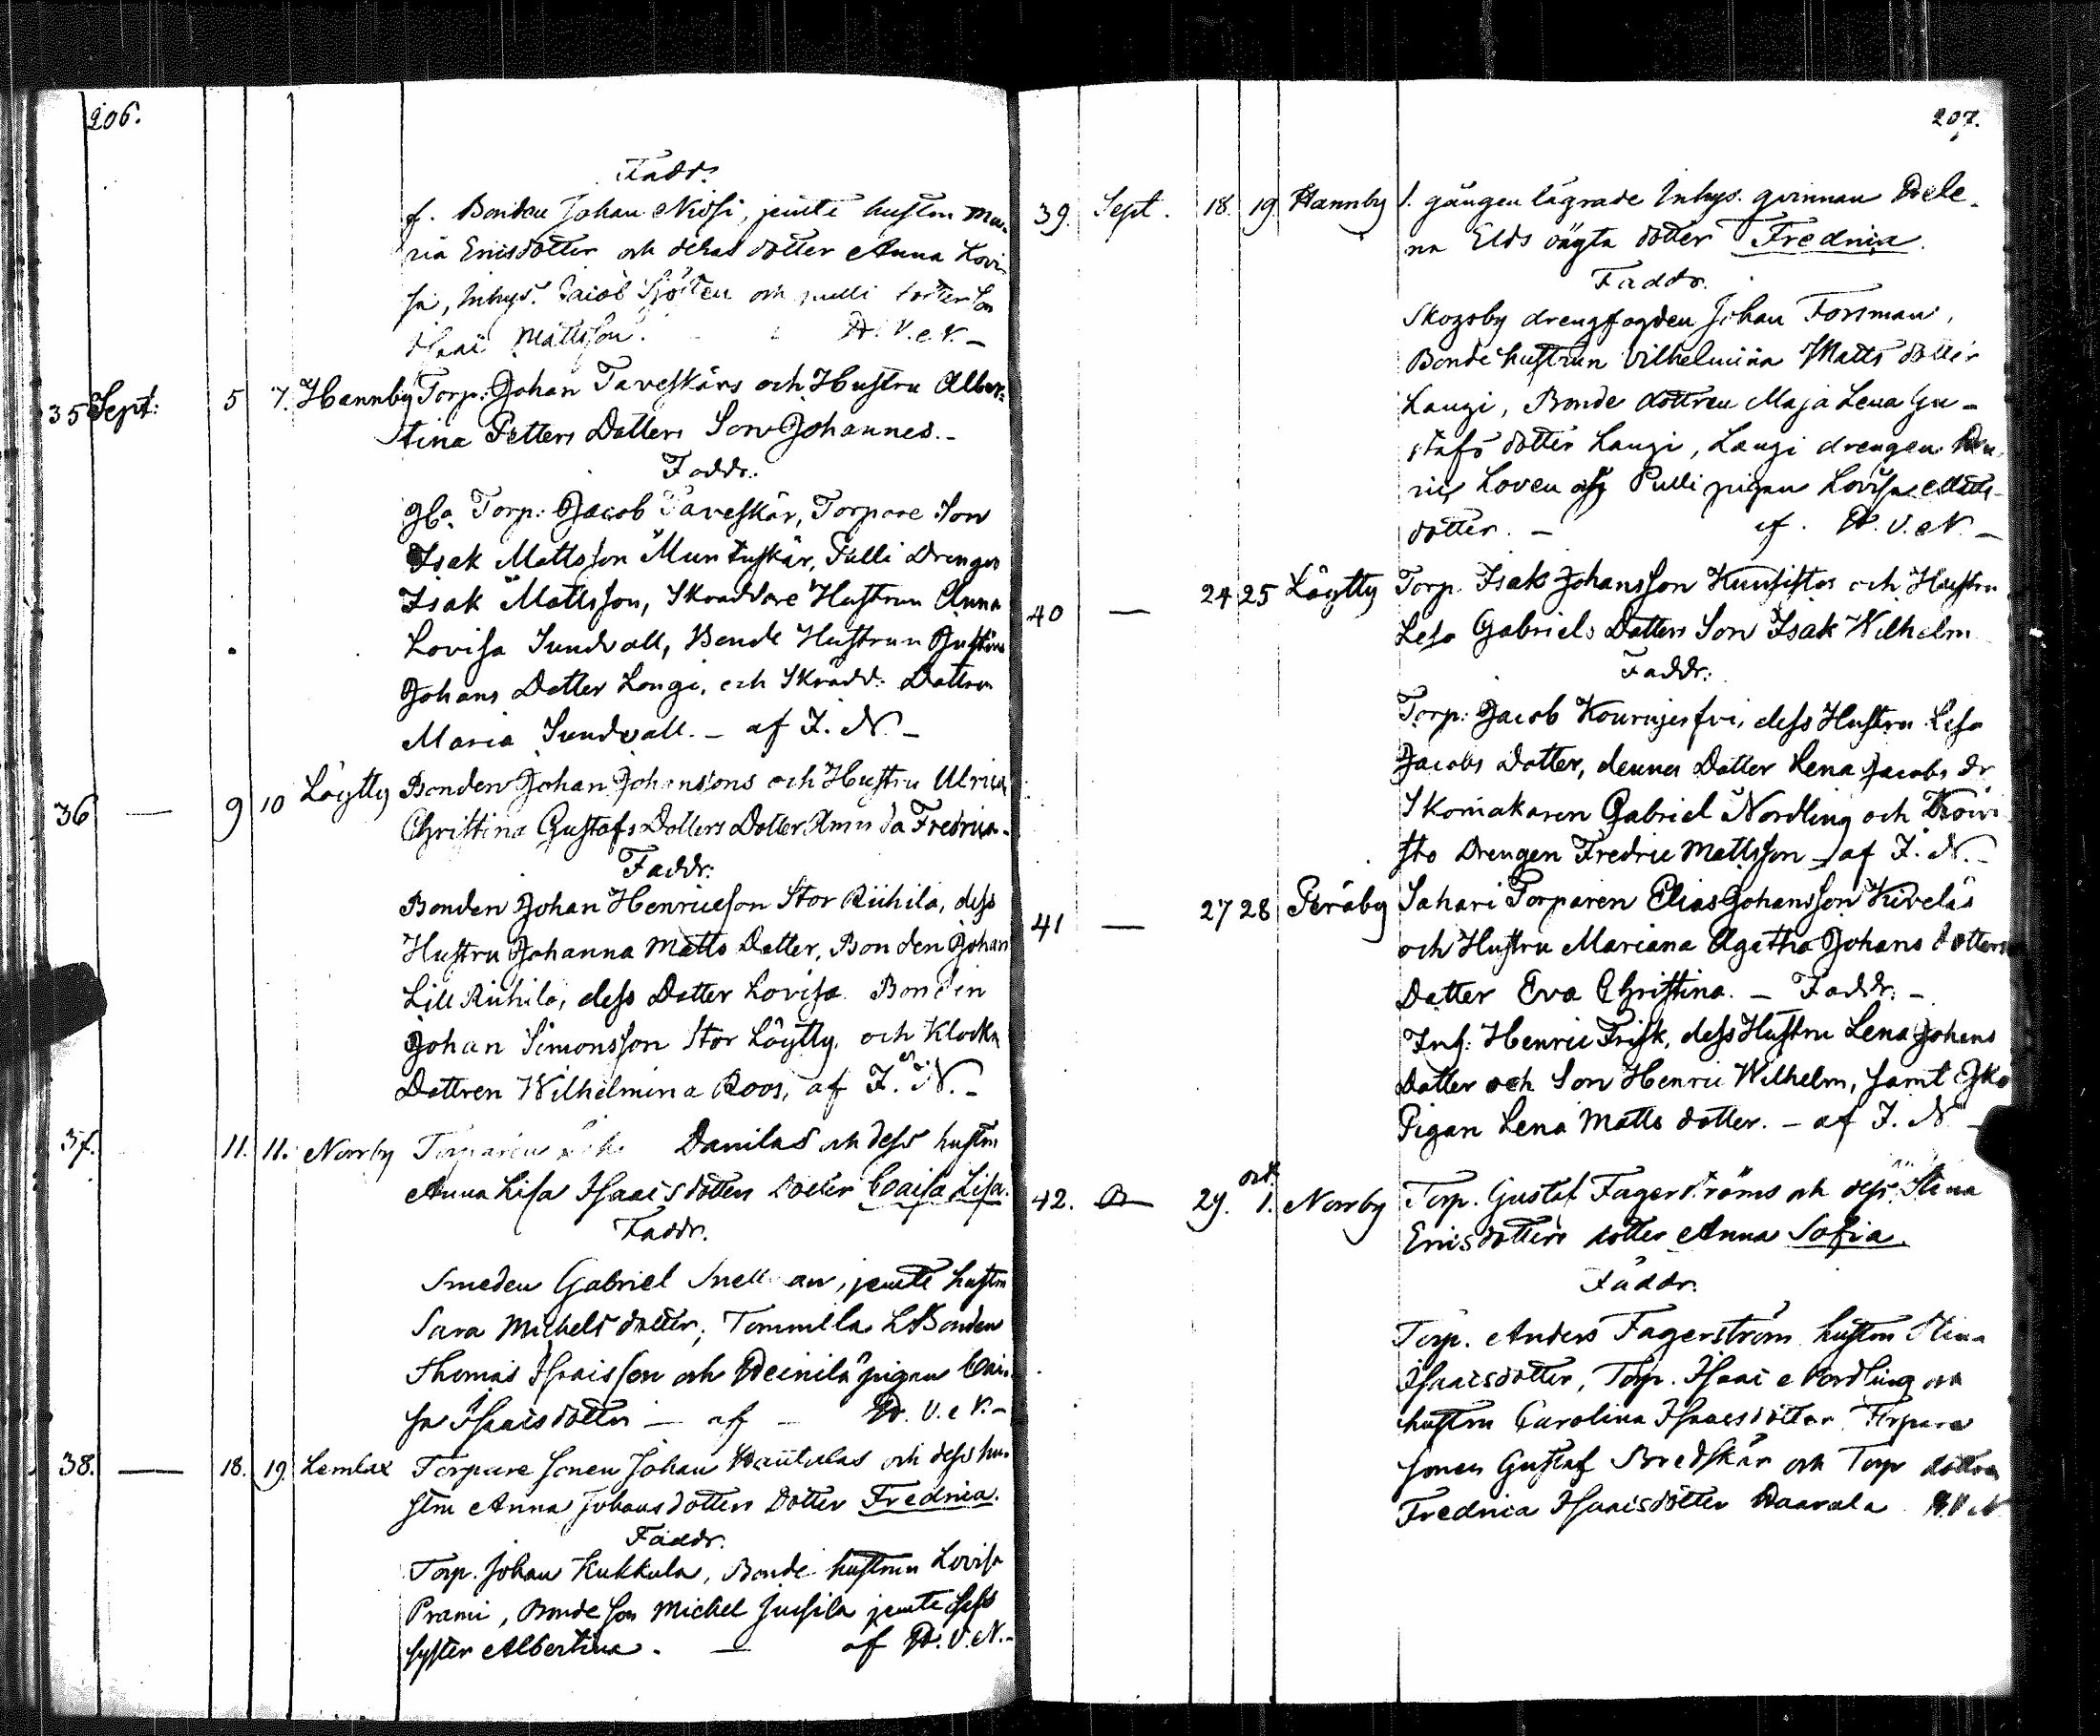 206.
Fadr.
f. Bonden Johan Nissi, jemte hustru Ma-
ria Ericsdotter och deras dotter Anna Lovi-
sa, Inhys. Jacob Sjösten och Pulli dotter Son
Isaac Mattsson. H. V. N. –
35 Sept: 5 7. Hannby Torp: Johan Taveskärs och Hustru Alber-
tina Petters Dotters Son Johannes. –
Faddr.
Torp: Jacob Taveskär, Torpare Son
Isak Mattsson Muntuskär, Pulli Drengen
Isak Mattsson, Skraddare Hustrun Anna
Lovisa Sundvall, Bonde Hustrun Justina
Johans Dotter Langi, och Skrädd: Dottren
Maria Sundvall. – af J. N. –
36 — 9 10 Löytty Bonden Johan Johanssons och Hustru Ulrica
Christina Gustafs Dotters Dotter Amanda Fredrica.
Faddr.
Bonden Johan Henricsson Stor Riihilä, dess
Hustru Johanna Matts Dotter, Bonden Johan
Lill Riihilä, dess Dotter Lovisa. Bonden
Johan Simonsson Stor Löytty, och Klockar
Dottren Wilhelmina Roos, af J. N. –
37. 11. 11. Norrby Torparen Danilas och dess hustru
Anna Lisa Isaacsdotters dotter Caisa Lisa.
Faddr.
Smeden Gabriel Snellman, jemte hustru
Sara Michelsdotter, Tommila Bonden
Thomas Isaacsson och Heinilä pigan Cai-
sa Isaacsdotter – af – H. V. N. –
38. — 18. 19 Lemlax Torpare sonen Johan Wäntulas och dess hu-
stru Anna Johansdotters Dotter Fredrica.
Faddr.
Torp. Johan Kukkula, Bonde hustrun Lovisa
Prami, Bonde Son Michel Jussila jemte dess
syster Albertina. — af H. V. N. –
207.
39. Sept. 18. 19. Hannby 1. gången lägrade Inhys. qvinnan Hele-
na Elds oägta dotter Fredrica.
Faddr.
Skogsby drengfogden Johan Forsman,
Bonde hustrun Vilhelmina Mattsdotter
Langi, Bonde dottren Maja Lena Gu-
stafsdotter Langi, Langi drengen Hen-
ric Loven och Pulli pigan Lovisa Matts-
dotter. – af. H. V. N. –
40 — 24 25 Löytty Torp. Isak Johansson Kuusistos och Hustru
Lesa Gabriels Dotters Son Isak Wilhelm
Faddr:
Torp: Jacob dess Hustru Lesa
Jacobs Dotter, dennes Dotter Lena Jacobs dr
Skomakaren Gabriel Nordling och Koivi-
sto Drengen Fredric Mattsson – af J. N. –
41 — 27 28 Peräby Sahari Torparen Elias Johansson Kiveläs
och Hustru Mariana Agatha Johans dotters
Dotter Eva Christina. – Faddr: –
Inh: Henric Frisk, dess Hustru Lena Johans
Dotter och Son Henric Wilhelm, samt
Pigan Lena Matts dotter. – af J. N. –
42. — 29. Oct. 1. Norrby Torp. Gustaf Fagerströms och dess Stina
Ericsdotters dotter Anna Sofia.
Faddr.
Torp. Anders Fagerström hustru Stina
Isaacsdotter, Torp. Isaac Nordling och
hustru Carolina Isaacsdotter Torpare
sonen Gustaf Bredskär och Torp dottren
Fredrica Isaacsdotter Haarala H. V. N.